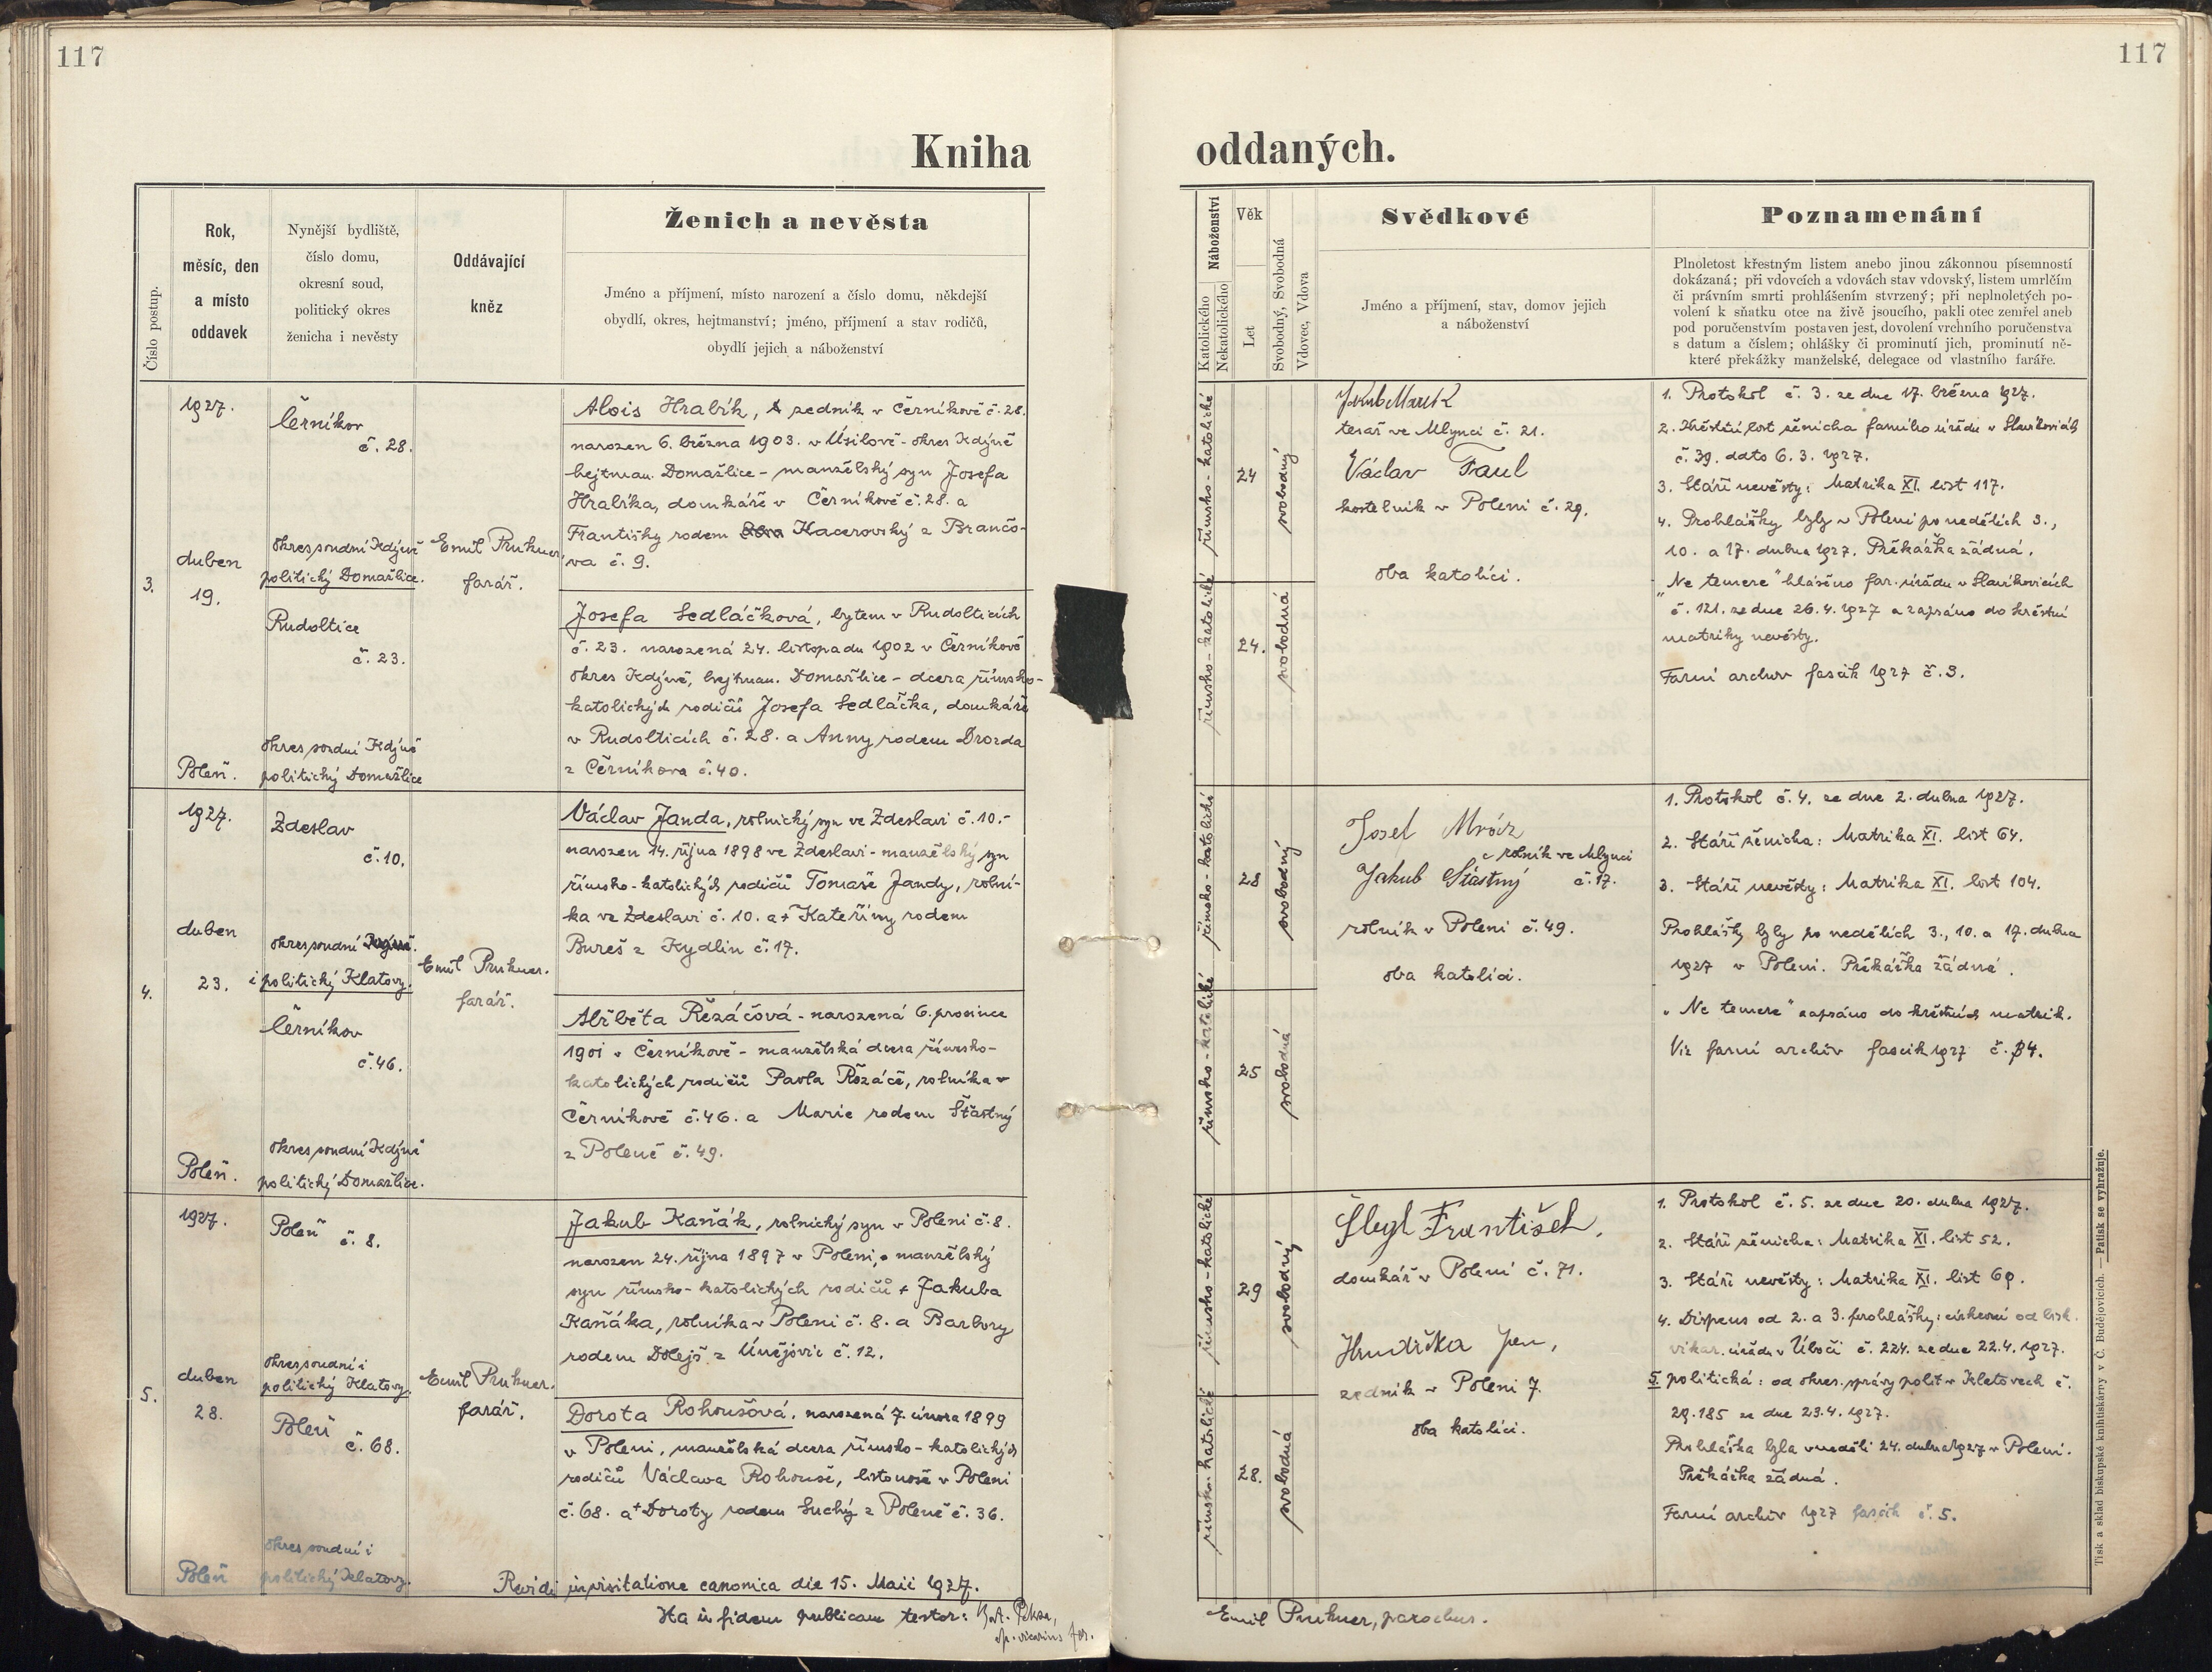 117
117
Kniha
oddaných.
Číslo postup.
Rok,
měsíc, den
a místo
oddavek
Nynější bydliště,
číslo domu,
okresní soud,
politický okres
ženicha i nevěsty
Oddávající
kněz
Ženich a nevěsta
Jméno a příjmení, místo narození a číslo domu, někdejší
obydlí, okres, hejtmanství; jméno, příjmení a stav rodičů,
obydlí jejich a náboženství
Náboženství
Katolického
Nekatolického
Věk
Let
Svobodný, Svobodná
Vdovec, Vdova
Svědkové
Jméno a příjmení, stav, domov jejich
a náboženství
Poznamenání
Plnoletost křestným listem anebo jinou zákonnou písemností
dokázaná; při vdovcích a vdovách stav vdovský, listem umrlčím
či právním smrti prohlášením stvrzený; při neplnoletých po-
volení k sňatku otce na živě jsoucího, pakli otec zemřel aneb
pod poručenstvím postaven jest, dovolení vrchního poručenstva
s datum a číslem; ohlášky či prominutí jich, prominutí ně-
které překážky manželské, delegace od vlastního faráře.
3.
1927.
duben
19.
Poleň.
Černíkov
č. 28.
okres soudní Kdýně
politický Domažlice.
Rudoltice
č. 23.
okres soudní Kdýně
politický Domažlice
Emil Prukner,
farář.
Alois Hrabík, zedník v Černíkově č. 28.
narozen 6. března 1903. v Úsilově - okres Kdýně
hejtman. Domažlice - manželský syn Josefa
Hrabíka, domkáře v Černíkově č. 28. a
Františky rodem Kacerovský z Brančo-
va č. 9.
Josefa Sedláčková, bytem v Rudolticích
č. 23. narozená 24. listopadu 1902 v Černíkově
okres Kdýně, hejtman. Domažlice - dcera římsko-
katolických rodičů Josefa Sedláčka, domkáře
v Rudolticích č. 28. a Anny rodem Drozda
z Černíkova č. 40.
římsko-katolické
24
svobodný
římsko-katolické
24.
svobodná
Jakub Marek
tesař ve Mlynci č. 21.
Václav Faul
kostelník v Poleni č. 29.
oba katolíci.
1. Protokol č. 3. ze dne 17. března 1927.
2. Křestní list ženicha farního úřadu v Slavíkovicích
č. 39. dato 6. 3. 1927.
3. Stáří nevěsty: Matrika XI. list 117.
4. Prohlášky byly v Poleni po nedělích 3.,
10. a 17. dubna 1927. Překážka žádná.
„Ne temere" hlášeno far. úřadu v Slavíkovicích
č. 121. ze dne 26. 4. 1927 a zapsáno do křestní
matriky nevěsty.
Farní archiv fascik 1927 č. 3.
4.
1927.
duben
23.
Poleň.
Zdeslav
č. 10.
okres soudní
i politický Klatovy.
Černíkov
č. 46.
okres soudní Kdýně
politický Domažlice.
Emil Prukner.
farář.
Václav Janda, rolnický syn ve Zdeslavi č. 10.-
narozen 14. října 1898 ve Zdeslavi - manželský syn
římsko-katolických rodičů Tomáše Jandy, rolní-
ka ve Zdeslavi č. 10. a + Kateřiny rodem
Bureš z Kydlin č. 17.
Alžběta Řezáčová - narozená 6. prosince
1901 v Černíkově - manželská dcera římsko-
katolických rodičů Pavla Řezáče, rolníka v
Černíkově č. 46. a Marie rodem Šťastný
z Poleně č. 49.
římsko-katolické
28
svobodný
římsko-katolické
25
svobodná
Josef Mráz
rolník ve Mlynci
Jakub Šťastný č. 17.
rolník v Poleni č. 49.
oba katolíci.
1. Protokol č. 4. ze dne 2. dubna 1927.
2. Stáří ženicha: Matrika XI. list 64.
3. Stáří nevěsty: Matrika XI. list 104.
Prohlášky byly po nedělích 3., 10. a 17. dubna
1927 v Poleni. Překážka žádná.
„Ne temere" zapsáno do křestních matrik.
Viz farní archiv fascik 1927 č. 4.
5.
1927.
duben
28.
Poleň
Poleň č. 8.
okres soudní i
politický Klatovy.
Poleň
č. 68.
okres soudní i
politický Klatovy.
Emil Prukner.
farář.
Jakub Kaňák, rolnický syn v Poleni č. 8.
narozen 24. října 1897 v Poleni, manželský
syn římsko-katolických rodičů + Jakuba
Kaňáka, rolníka v Poleni č. 8. a Barbory
rodem Dolejš z Únějovic č. 12.
Dorota Rohoušová, narozená 7. února 1899
v Poleni, manželská dcera římsko-katolických
rodičů Václava Rohouše, listonoše v Poleni
č. 68. a + Doroty rodem Suchý z Poleně č. 36.
římsko-katolické
29
svobodný
římsko-katolické
28.
svobodná
Šlegl František,
domkář v Poleni č. 71.
Hrudička Jan,
zedník v Poleni 7.
oba katolíci.
1. Protokol č. 5. ze dne 20. dubna 1927.
2. Stáří ženicha: Matrika XI. list 52.
3. Stáří nevěsty: Matrika XI. list 69.
4. Dispens od 2. a 3. prohlášky: církevní od bisk.
vikar. úřadu v Úboči č. 224. ze dne 22. 4. 1927.
5. politická: od okres. správy polit v Klatovech č.
29.185 ze dne 23. 4. 1927.
Prohláška byla v neděli 24. dubna 1927 v Poleni.
Překážka žádná.
Farní archiv 1927 fascik č. 5.
Revidi in visitatione canonica die 15. Maii 1927.
Ita in fidem publicam testor:
Emil Prukner, parochus.
Tisk a sklad biskupské knihtiskárny v Č. Budějovicích. — Patisk se vyhražuje.